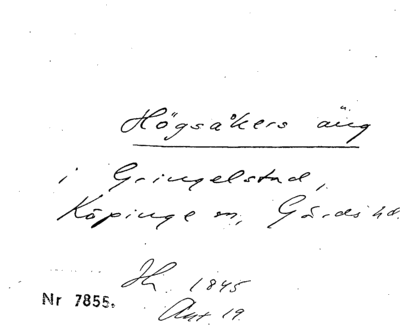 Högsåkers äng
i Gringelstad,
Köpinge sn, Gärds hd.
Jh. 1845
Ant. 19.
Nr 7855.